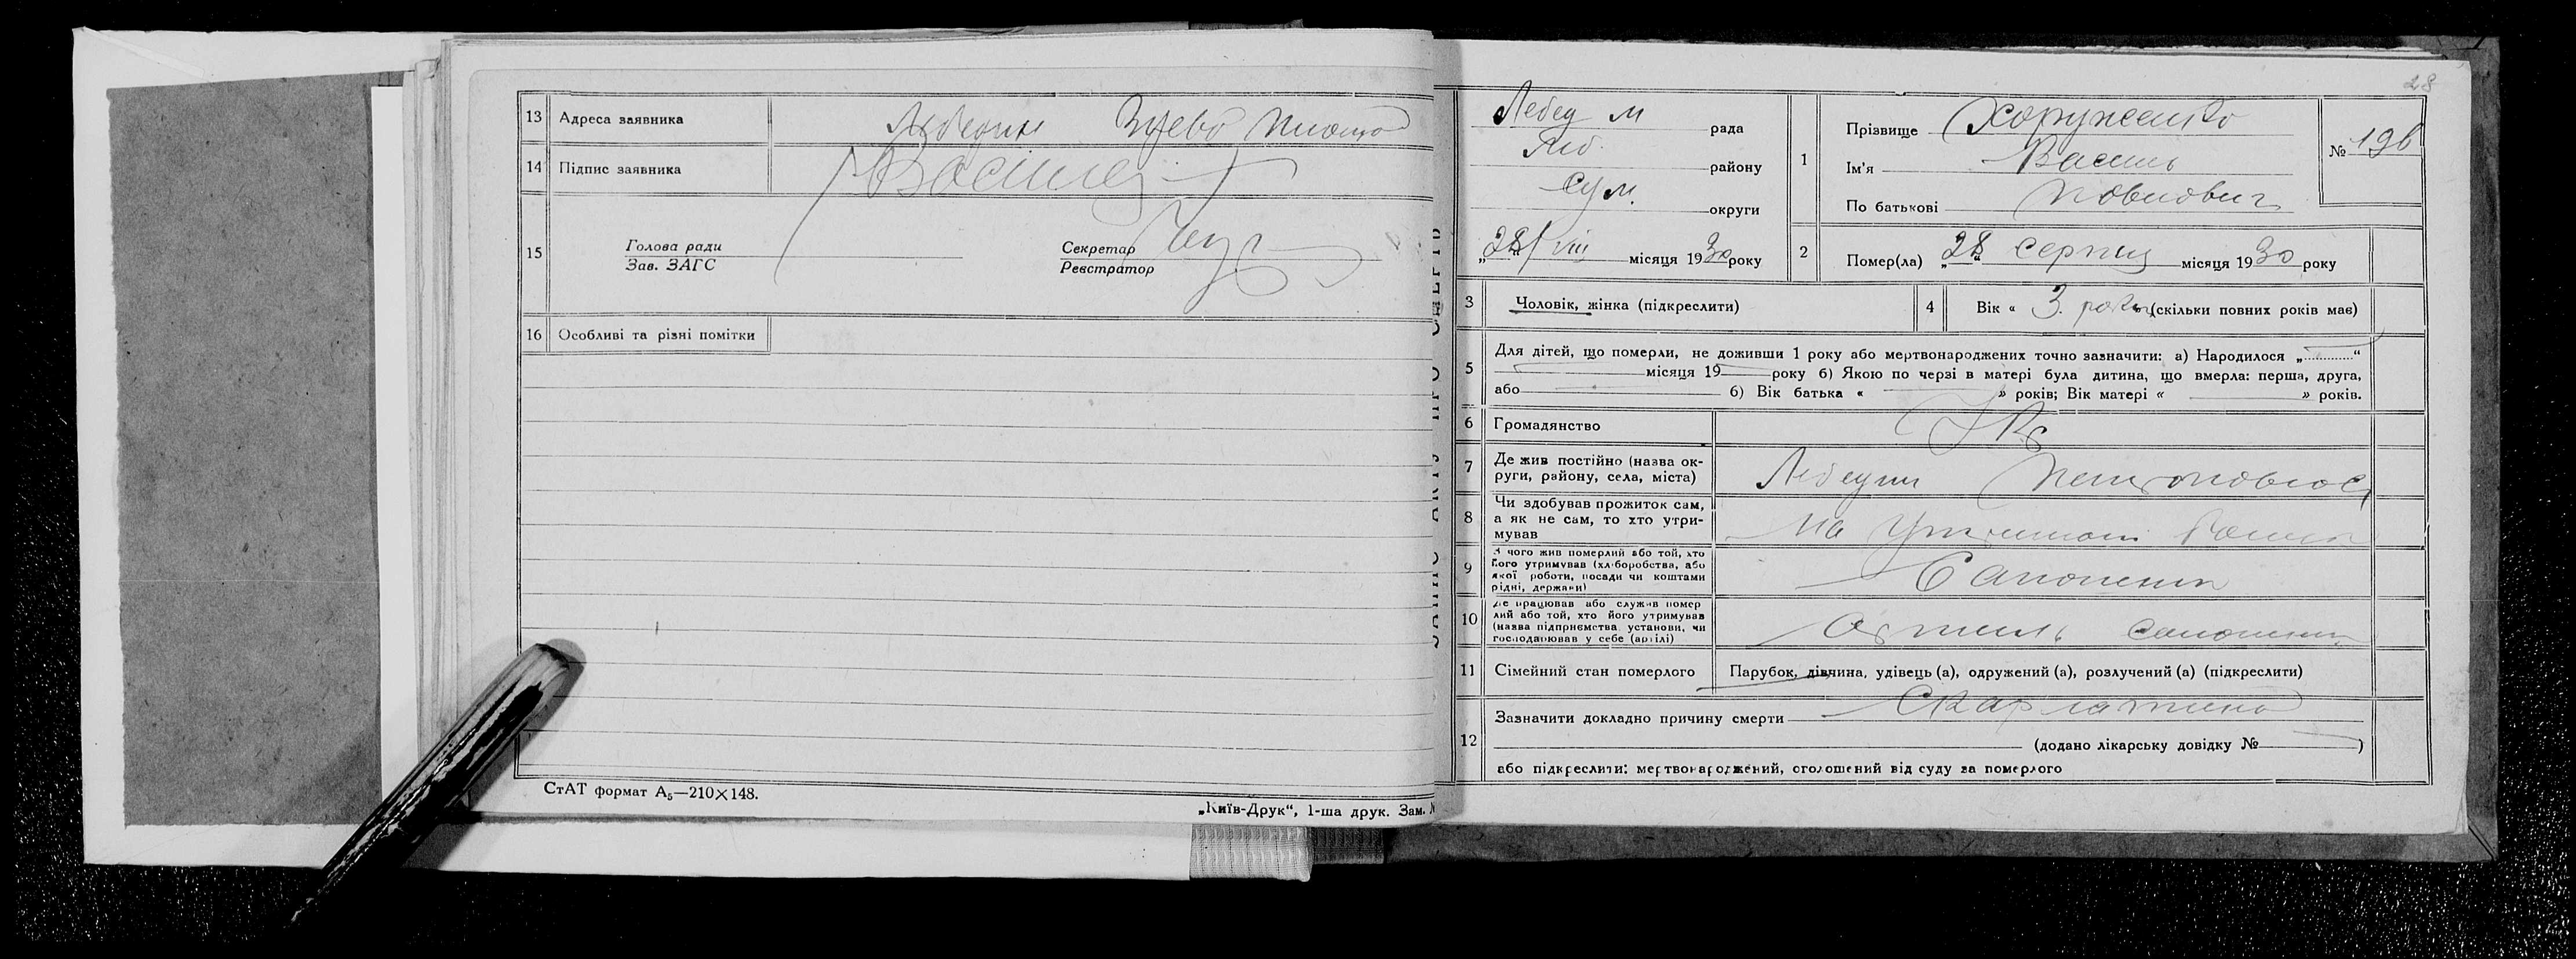 13 Адреса заявника Лебедин
14 Підпис заявника
15 Голова ради
Зав. ЗАГС
Секретар
Реєстратор
16 Особливі та різні помітки
СтАТ формат А5—210×148.
„Київ-Друк“, 1-ша друк. Зам.
28
Лебед м рада
Леб. району
Сум. округи
„28/VIII місяця 1930 року
1 Прізвище Хоруженко
Ім'я Василь
По батькові Павлович
№ 196
2 Помер(ла) „28“ серпня місяця 1930 року
3 Чоловік, жінка (підкреслити)
4 Вік « 3 роки (скільки повних років має)
5 Для дітей, що померли, не доживши 1 року або мертвонароджених точно зазначити: а) Народилося „ “
місяця 19 року б) Якою по черзі в матері була дитина, що вмерла: перша, друга,
або б) Вік батька « » років; Вік матері « » років.
6 Громадянство
7 Де жив постійно (назва ок-
руги, району, села, міста) Лебедин
8 Чи здобував прожиток сам,
а як не сам, то хто утри-
мував На утриманні батька
9 З чого жив померлий або той, хто
його утримував (хліборобства, або
якої роботи, посади чи коштами
рідні, держави)
10 Де працював або служив помер
лий або той, хто його утримував
(назва підприємства установи, чи
господарював у себе (артілі) Артиль
11 Сімейний стан померлого Парубок, дівчина, удівець (а), одружений (а), розлучений (а) (підкреслити)
12 Зазначити докладно причину смерти Скарлатина
(додано лікарську довідку № )
або підкреслити: мертвонароджений, оголошений від суду за померлого